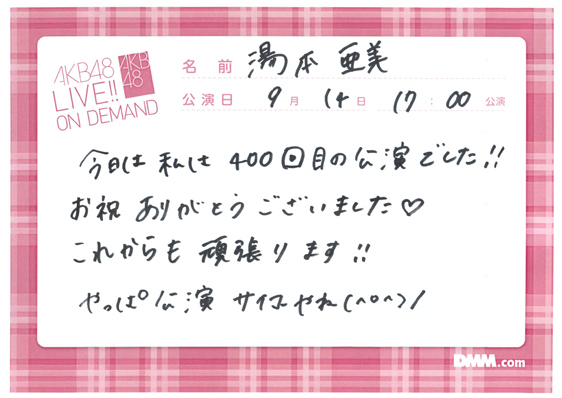 AKB48
LIVE!!
ON DEMAND
AKB
48
名前 湯本 亜美
公演日 9月 14日 17:00 公演
今日は 私は 400回目の公演でした!!
お祝 ありがとうございました♡
これからも 頑張ります!!
やっぱ公演 サイコーやね(^o^)/
DMM.com